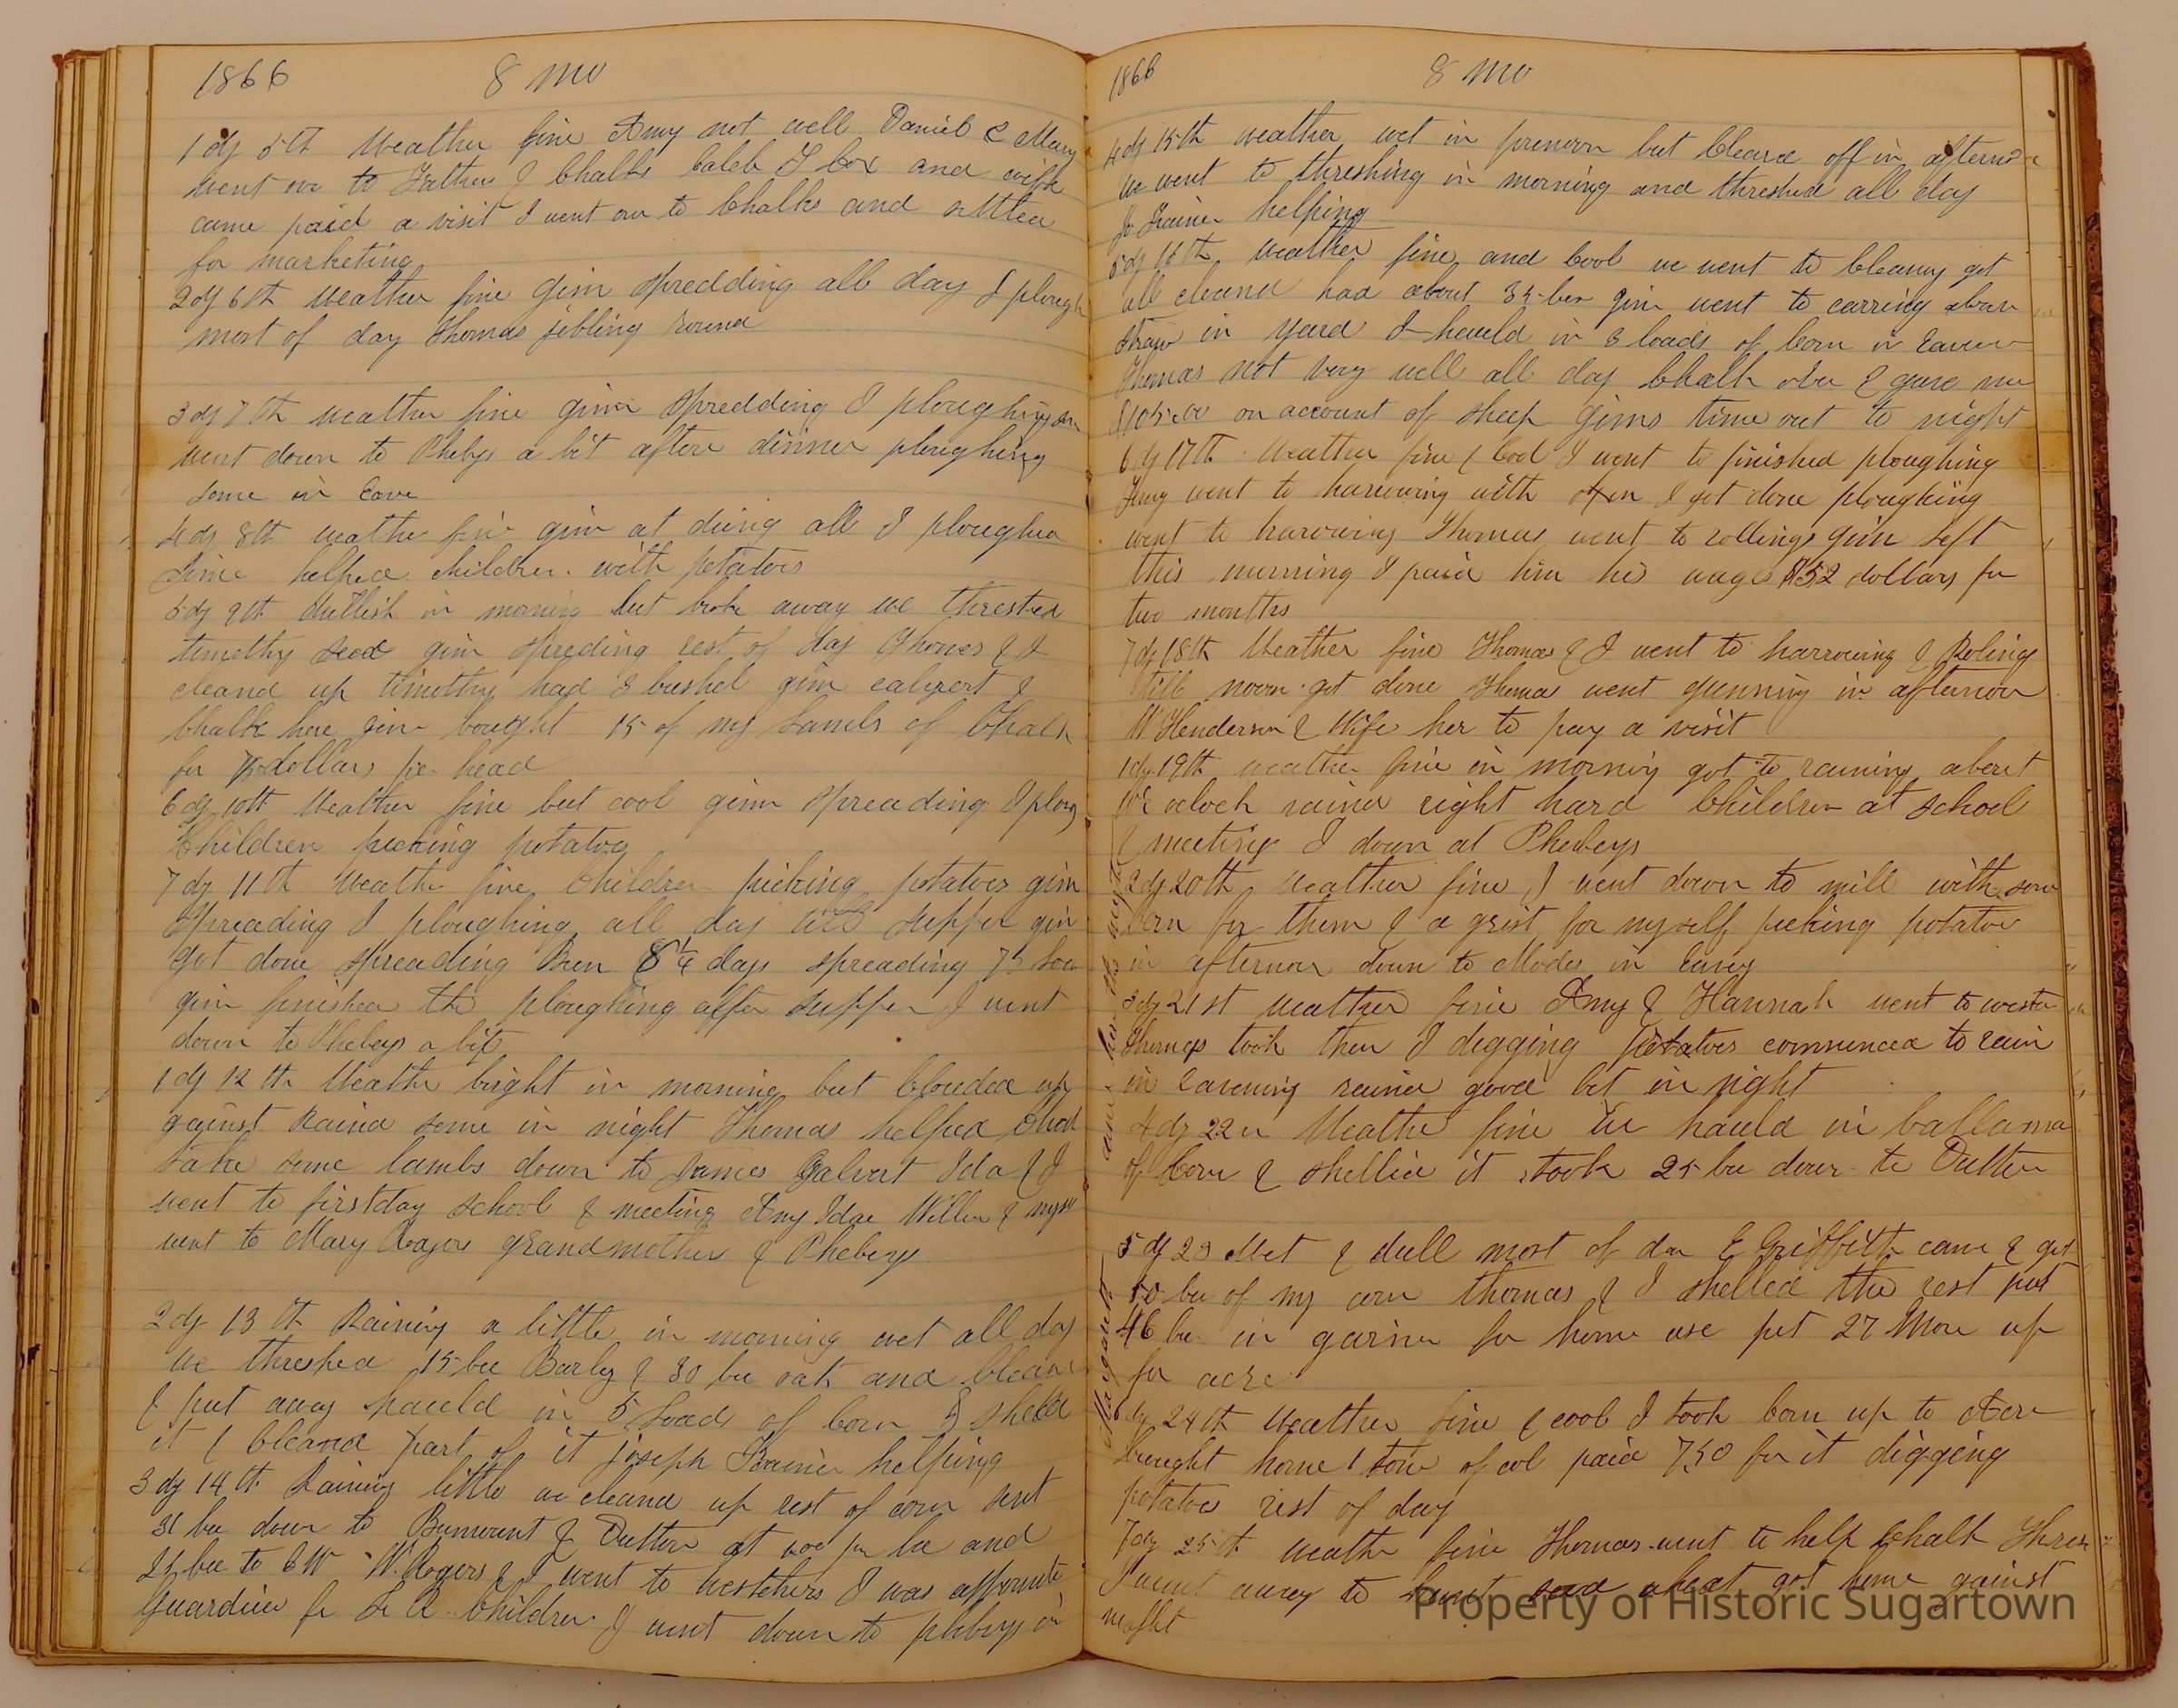 1866 8 mo
1 dy 5th Weather fine Amy not well Daniel & Mary
went over to Father & Chalks Caleb J Cox and wife
came paid a visit I went over to Chalks and settled
for marketing
2 dy 6th Weather fine gim spredding all day I plough
most of day Thomas jobling round
3 dy 7th weather fine gim spredding I ploughing
went down to Phebys a bit after dinner ploughing
some in Eave
4 dy 8th weather fine gim at dung all I ploughed
some helped children with potatoes
5 dy 9th dullish in morning but broke away we threshed
timothy seed gim spreding rest of day Thomas & I
cleand up timothy had 3 bushel gim &
Chalk here gim bought 15 of my Lambs of Chalk
for dollars per head
6 dy 10th Weather fine but cool gim spreading I plough
Children picking potatoes
7 dy 11th Weather fine Children picking potatoes gim
spreading I ploughing all day till supper gim
got done spreading Been 8 1/4 days spreading 75
gim finished the ploughing after supper I went
down to Phebeys a bit
1 dy 12th Weather bright in morning but clouded up
against Raind some in night Thomas helped Chalk
take some lambs down to James Galvert Ida & I
went to firstday school & meeting Amy Idae Willie &
went to Mary Rogers grandmother & Phebeys
2 dy 13th Raining a little in morning wet all day
we threshed 15 bu Barley & 30 bu oats and cleand
& put away hauld in 5 loads of Corn & sheld
it & cleand part of it joseph Trainer helping
3 dy 14th Raining little we cleand up rest of corn sent
31 bu down to & Dutton at per bu and
25 bu to C W W. Rogers & I went to westchers I was appointe
Guardien for Children I went down to phebeys in
1866 8 mo
4 dy 15th weather wet in forenoon but Cleard off in afternoon
we went to threshing in morning and threshed all day
Jo Trainer helping
5 dy 16th Weather fine and Cool we went to Cleaning got
all cleand had about 35 bu gim went to carring
straw in yard I hauld in 3 loads of Corn in Eaven
Thomas not very well all day Chalk over & gave me
$105.00 on account of sheep Gims time out to night
6 dy 17th Weather fine & Cool I went to finished ploughing
Jimy went to harrowing with oxen I got done ploughing
went to harrowing Thomas went to rolling gim left
this morning I paid him his wages $52 dollars for
two months
7 dy 18th Weather fine Thomas & I went to harrowing & Roling
till noon got done Thomas went gunning in afternoon
W Henderson & Wife her to pay a visit
1 dy 19th weather fine in morning got to raining about
10 oclock raind right hard Children at school
& meeting I down at Phebeys
2 dy 20th Weather fine I went down to mill with some
Corn for them & a grist for myself picking potatoe
in afternoon down to Modes in Eaveg
3 dy 21st weather fine Amy & Hannah went to wester
Thomas took them I digging potatoes commenced to rain
in Eavening rained good bit in night
4 dy 22n Weather fine We hauld in
of Corn & shelled it took 25 bu down to Dutton
5 dy 23 Wet & dull most of da E Griffith came & got
50 bu of my corn thomas & I shelled the rest put
46 bu in garner for home use put 27 More up
for acre
6 dy 24th Weather fine & cool I took Corn up to Acre
brought home 1 tone of col paid 7.50 for it digging
potatoe rest of day
7 dy 25th weather fine Thomas went to help Chalk Thres
I went away to hunt seed wheat got home gainst
night
Property of Historic Sugartown